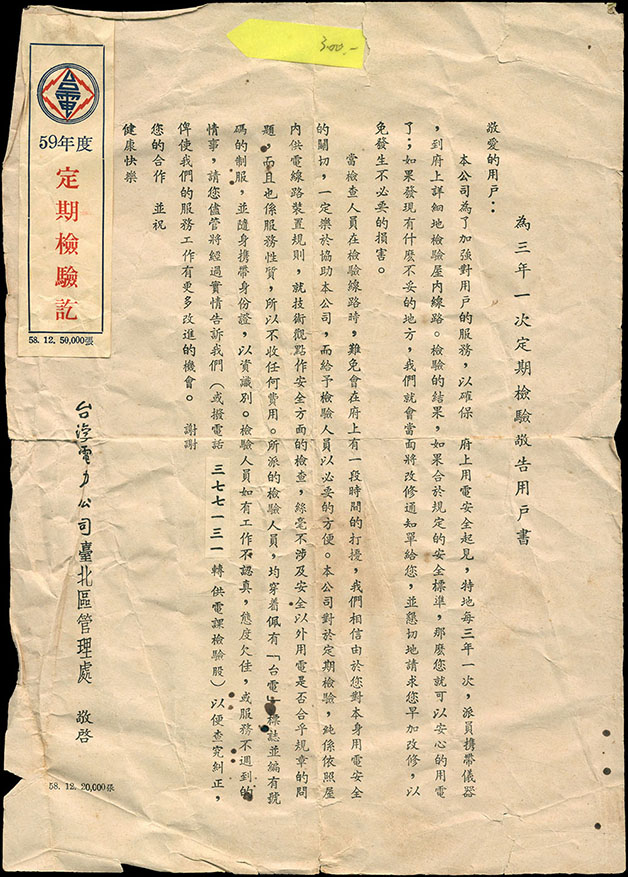 為三年一次定期檢驗敬告用戶書
敬愛的用戶：
本公司為了加強對用戶的服務，以確保　府上用電安全起見，特地每三年一次，派員携帶儀器
，到府上詳細地檢驗屋內線路。檢驗的結果，如果合於規定的安全標準，那麼您就可以安心的用電
了；如果發現有什麼不妥的地方，我們就會當面將改修通知單給您，並懇切地請求您早加改修，以
免發生不必要的損害。
當檢查人員在檢驗線路時，難免會在府上有一段時間的打擾，我們相信由於您對本身用電安全
的關切，一定樂於協助本公司，而給予檢驗人員以必要的方便。本公司對於定期檢驗，純係依照屋
內供電線路裝置規則，就技術觀點作安全方面的檢查，絲毫不涉及安全以外用電是否合乎規章的問
題，而且也係服務性質，所以不收任何費用。所派的檢驗人員，均穿着佩有「台電」標誌並編有號
碼的制服，並隨身携帶身份證，以資識別。檢驗人員如有工作不認真，態度欠佳，或服務不週到的
情事，請您儘管將經過實情告訴我們（或撥電話　三七七一三一　轉供電課檢驗股）以便查究糾正，
俾使我們的服務工作有更多改進的機會。　謝謝
您的合作　並祝
健康快樂
台灣電力公司臺北區管理處　敬啓
58. 12. 20,000張
台電
59年度
定期檢驗訖
58. 12. 50,000張
300.-